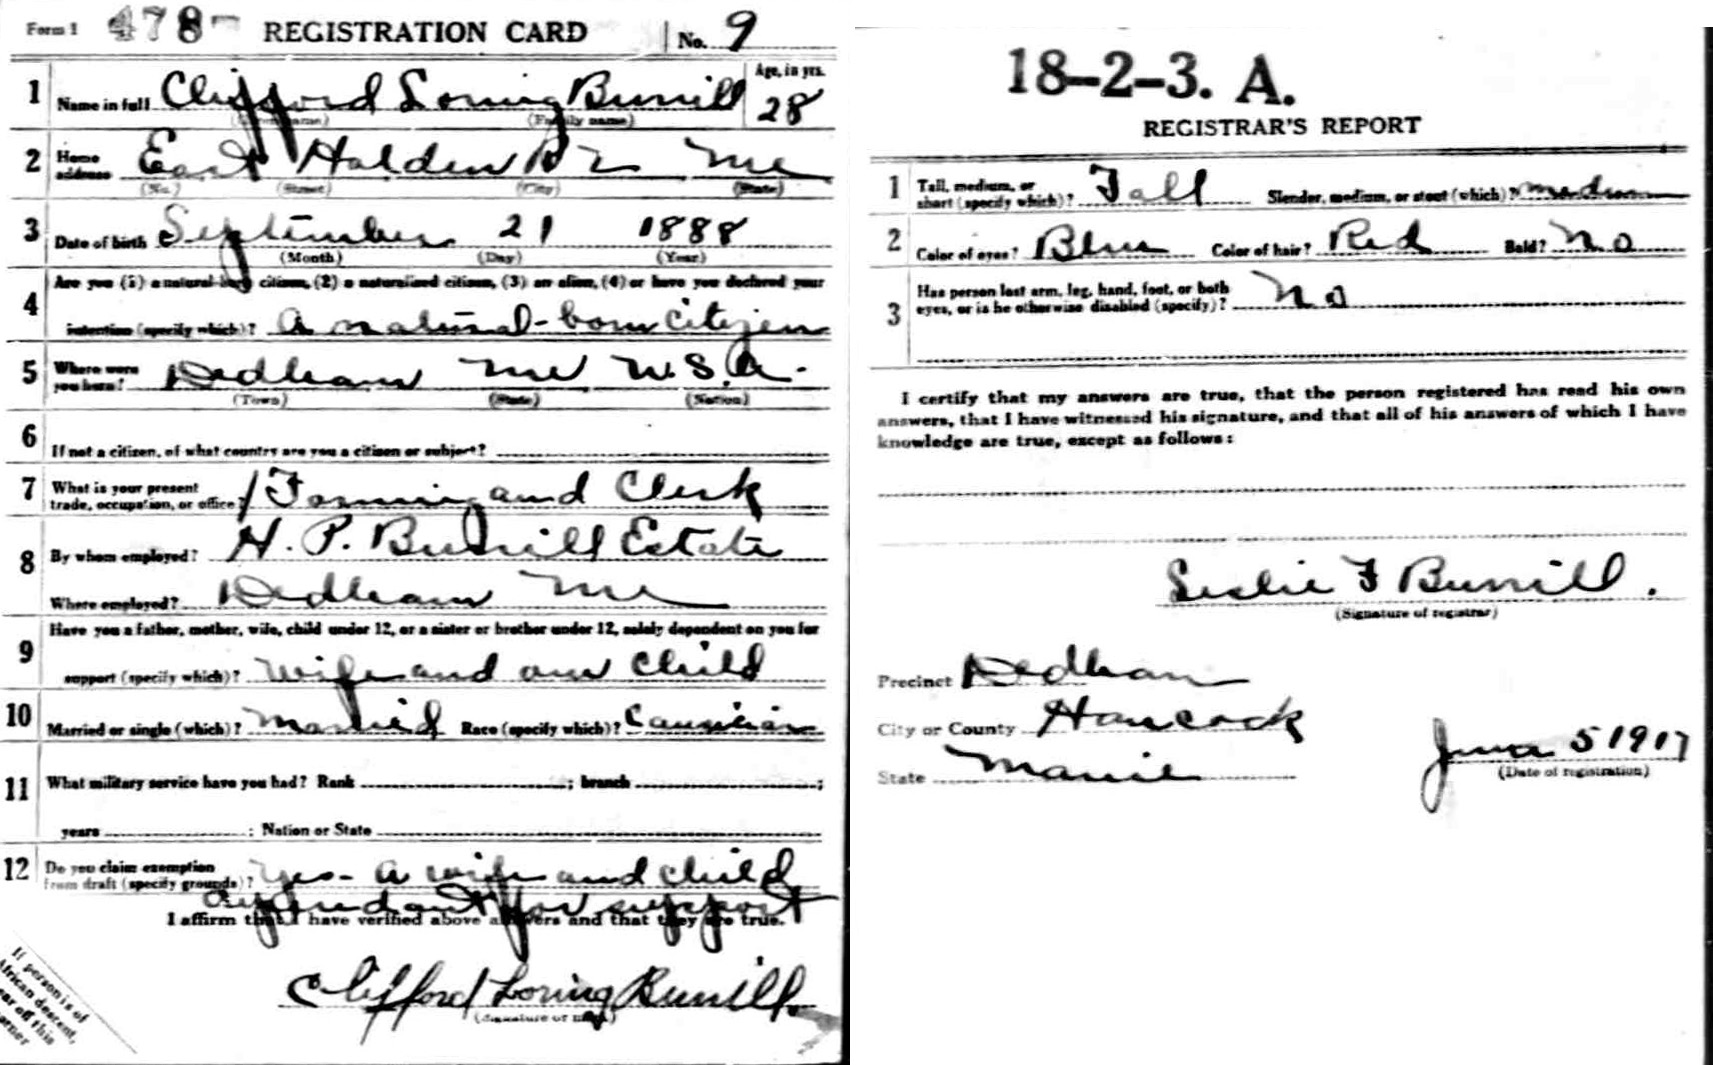 Form 1 478 REGISTRATION CARD No. 9
1 Name in full Clifford Loring Burrill Age, in yrs. 28
(Given name) (Family name)
2 Home address East Holden R 2 Me
(No.) (Street) (City) (State)
3 Date of birth September 21 1888
(Month) (Day) (Year)
4 Are you (1) a natural-born citizen, (2) a naturalized citizen, (3) an alien, (4) or have you declared your
intention (specify which)? A natural-born citizen
5 Where were you born? Dedham Me U.S.A.
(Town) (State) (Nation)
6 If not a citizen, of what country are you a citizen or subject?
7 What is your present trade, occupation, or office? Farming and Clerk
8 By whom employed? H. P. Burrill Estate
Where employed? Dedham Me
9 Have you a father, mother, wife, child under 12, or a sister or brother under 12, solely dependent on you for
support (specify which)? Wife and one child
10 Married or single (which)? Married Race (specify which)? Caucasian
11 What military service have you had? Rank ; branch ;
years ; Nation or State
12 Do you claim exemption from draft (specify grounds)? Yes - A wife and child
dependant for support
I affirm that I have verified above answers and that they are true.
Clifford Loring Burrill
(Signature or mark)
If person is of
African descent,
tear off this
corner
18-2-3. A.
REGISTRAR'S REPORT
1 Tall, medium, or short (specify which)? Tall Slender, medium, or stout (which)? medium
2 Color of eyes? Blue Color of hair? Red Bald? No
3 Has person lost arm, leg, hand, foot, or both
eyes, or is he otherwise disabled (specify)? No
I certify that my answers are true, that the person registered has read his own
answers, that I have witnessed his signature, and that all of his answers of which I have
knowledge are true, except as follows:
Leslie F Burrill.
(Signature of registrar)
Precinct Dedham
City or County Hancock
State Maine
June 5 1917
(Date of registration)